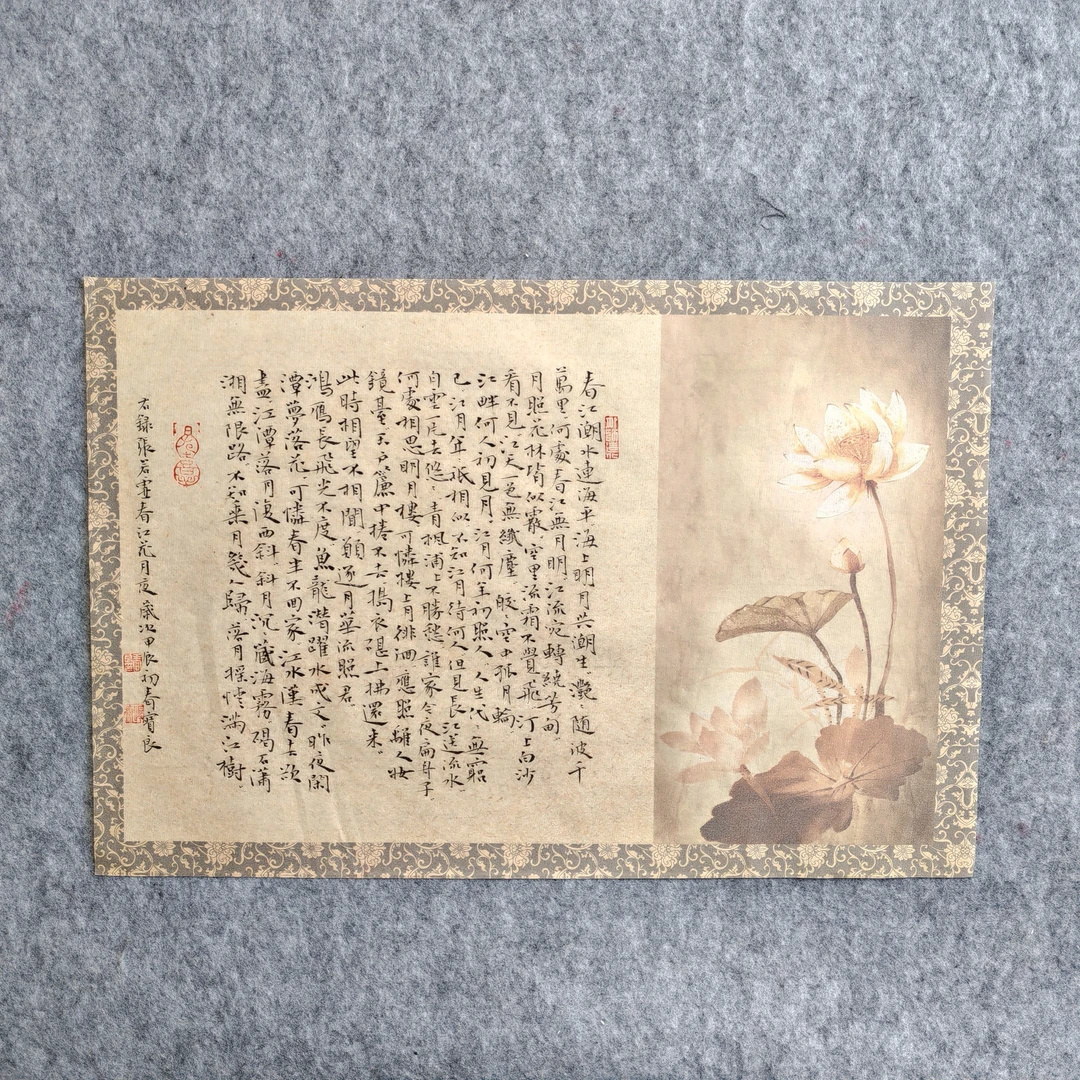 春江潮水連海平海上明月共潮生灔〻随波千
萬里何處春江無月明江流宛轉繞芳甸
月照花林皆似霰空里流霜不覺飛汀上白沙
看不見江天一色無纖塵皎〻空中孤月輪
江畔何人初見月江月何年初照人人生代〻無窮
已江月年〻祇相似不知江月待何人但見長江送流水
白雲一片去悠〻青楓浦上不勝愁誰家今夜扁舟子
何處相思明月樓可憐樓上月徘徊應照離人妝
鏡臺玉戶簾中捲不去搗衣砧上拂還来
此時相望不相聞願逐月華流照君
鴻雁長飛光不度魚龍潛躍水成文昨夜閑
潭夢落花可憐春半不回家江水流春去欲
盡江潭落月復西斜斜月沉〻藏海霧碣石瀟
湘無限路不知乘月幾人歸落月摇情滿江樹
右録張若虛春江花月夜歲次甲辰初春寶良